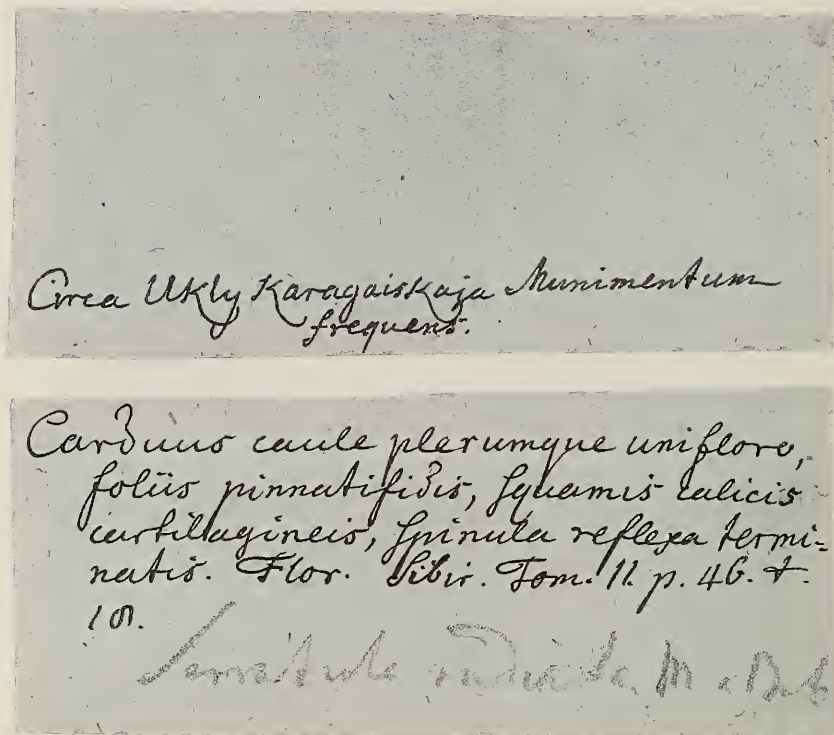 Circa Ukly Karagaiskaja Munimentum
frequens.
Carduus caule plerumque unifloro,
foliis pinnatifidis, squamis calicis
cartilagineis, spinula reflexa termi=
natis. Flor. Sibir. Tom. II. p. 46. t.
18.
Serratula radiata. M. a B.